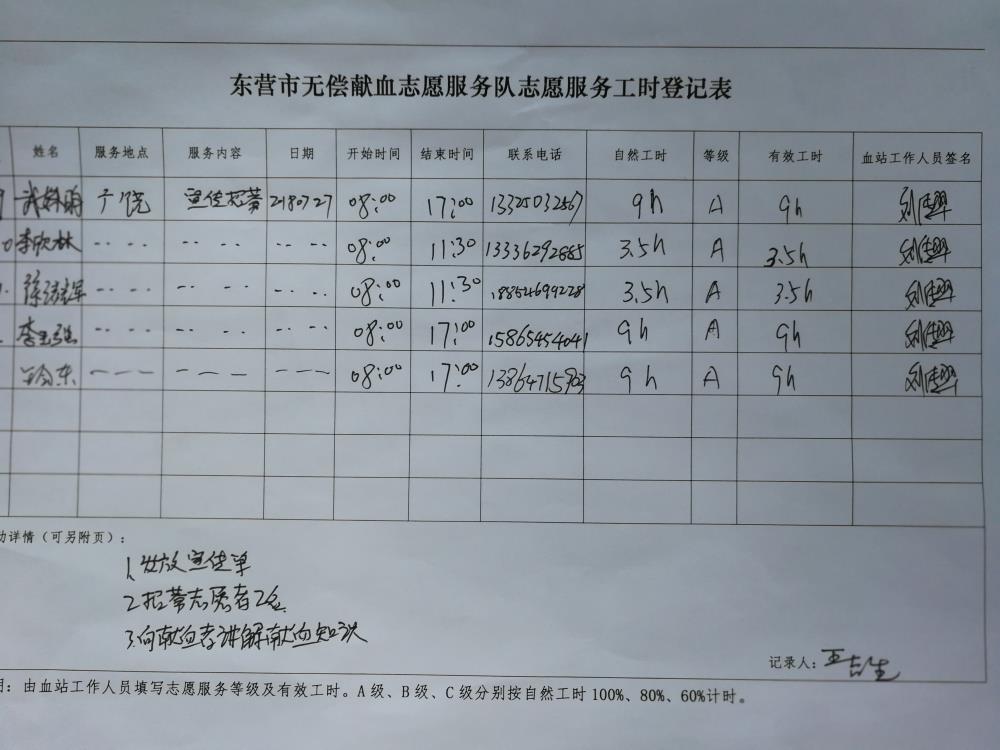 东营市无偿献血志愿服务队志愿服务工时登记表
姓名 服务地点 服务内容 日期 开始时间 结束时间 联系电话 自然工时 等级 有效工时 血站工作人员签名
广饶 宣传招募 08:00 17:00 13325032567 9h A 9h
李欣林 08:00 11:30 13336292885 3.5h A 3.5h
08:00 11:30 18854699228 3.5h A 3.5h
李玉强 08:00 17:00 15865454041 9h A 9h
08:00 17:00 9h A 9h
动详情（可另附页）：
1、发放宣传单
2.招募志愿者2名
3.向献血者讲解献血知识
记录人：王志生
明：由血站工作人员填写志愿服务等级及有效工时。A 级、B 级、C 级分别按自然工时 100%、80%、60%计时。